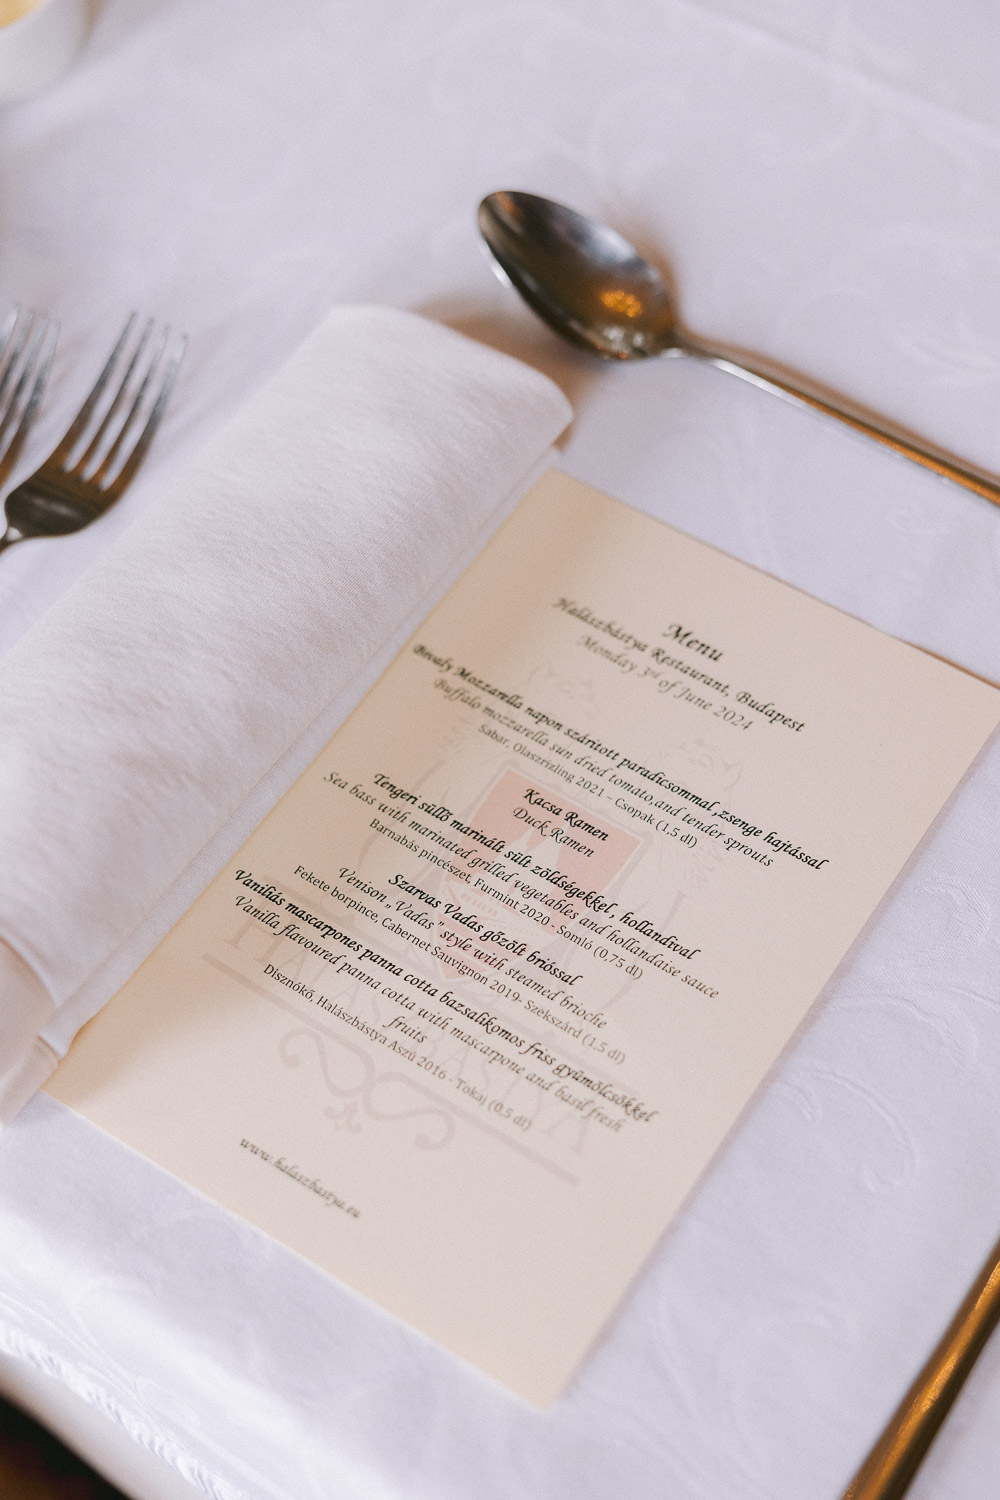 Menu
Halászbástya Restaurant, Budapest
Monday 3rd of June 2024
Bivaly Mozzarella napon szárított paradicsommal, zsenge hajtással
Buffalo mozzarella sun dried tomato, and tender sprouts
Sabar, Olaszrizling 2021 - Csopak (1.5 dl)
Kacsa Ramen
Duck Ramen
Tengeri süllő marinált sült zöldségekkel, hollandival
Sea bass with marinated grilled vegetables and hollandaise sauce
Barnabás pincészet, Furmint 2020 - Somló (0,75 dl)
Szarvas Vadas gőzölt brióssal
Venison „Vadas" style with steamed brioche
Fekete borpince, Cabernet Sauvignon 2019- Szekszárd (1.5 dl)
Vaniliás mascarpones panna cotta bazsalikomos friss gyümölcsökkel
Vanilla flavoured panna cotta with mascarpone and basil fresh
fruits
Disznókő, Halászbástya Aszú 2016 - Tokaj (0.5 dl)
www.halaszbastya.eu